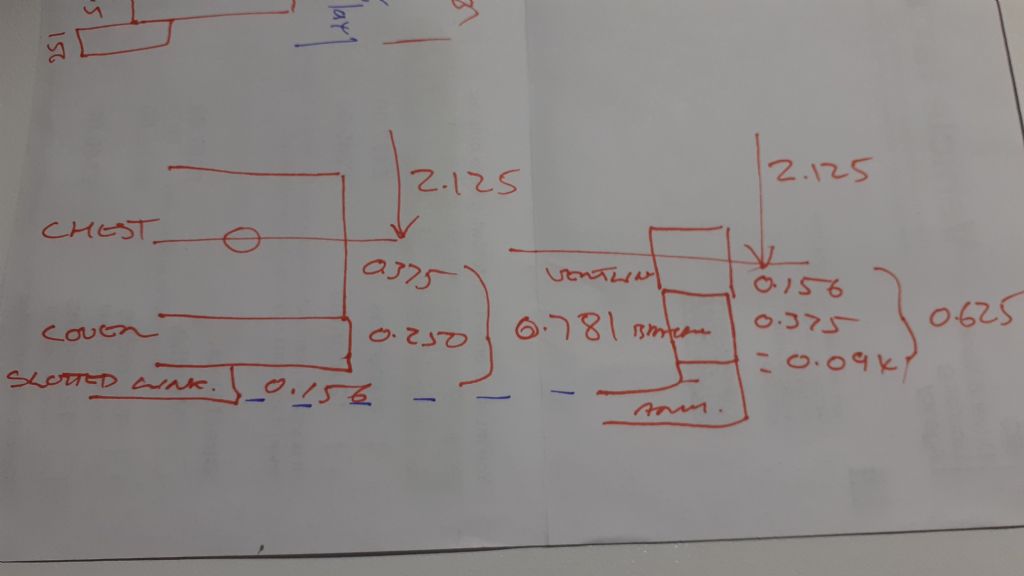 2.125
2.125
CHEST
0.375
0.156
0.375
COVER
0.250
0.781
0.625
= 0.094
SLOTTED LINK.
0.156